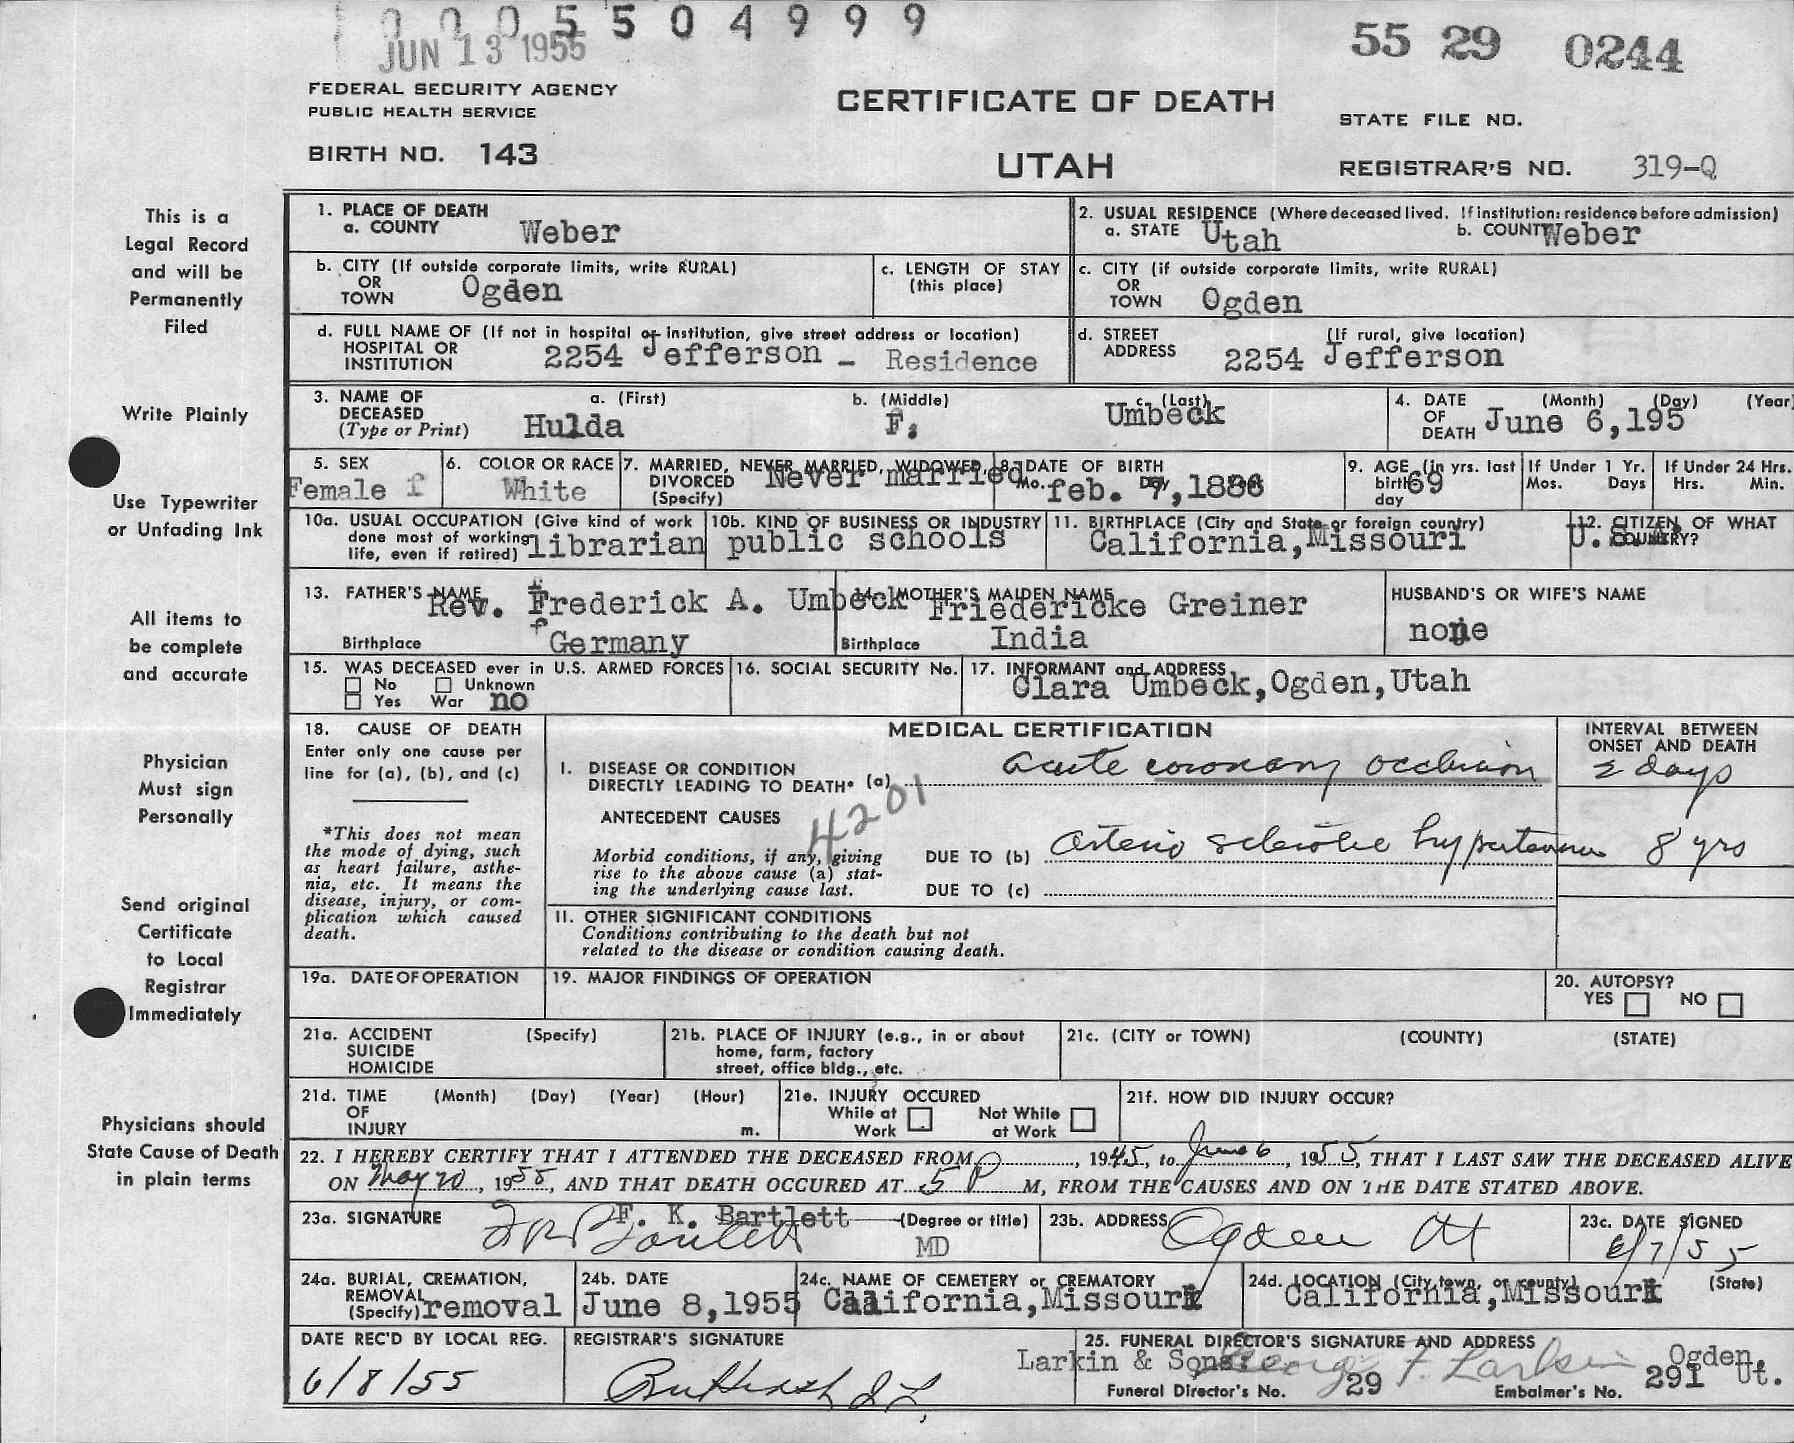 0 0 0 5 5 0 4 9 9 9
JUN 13 1955
55 29 0244
FEDERAL SECURITY AGENCY
PUBLIC HEALTH SERVICE
CERTIFICATE OF DEATH
STATE FILE NO.
BIRTH NO. 143
UTAH
REGISTRAR'S NO. 319-Q
This is a
Legal Record
and will be
Permanently
Filed
Write Plainly
Use Typewriter
or Unfading Ink
All items to
be complete
and accurate
Physician
Must sign
Personally
Send original
Certificate
to Local
Registrar
Immediately
Physicians should
State Cause of Death
in plain terms
1. PLACE OF DEATH
a. COUNTY Weber
2. USUAL RESIDENCE (Where deceased lived. If institution: residence before admission)
a. STATE Utah b. COUNTY Weber
b. CITY (If outside corporate limits, write RURAL)
OR
TOWN Ogden
c. LENGTH OF STAY
(this place)
c. CITY (if outside corporate limits, write RURAL)
OR
TOWN Ogden
d. FULL NAME OF (If not in hospital or institution, give street address or location)
HOSPITAL OR
INSTITUTION 2254 Jefferson - Residence
d. STREET (If rural, give location)
ADDRESS 2254 Jefferson
3. NAME OF a. (First) b. (Middle) c. (Last)
DECEASED
(Type or Print) Hulda F. Umbeck
4. DATE (Month) (Day) (Year)
OF
DEATH June 6,195
5. SEX
Female f
6. COLOR OR RACE
White
7. MARRIED, NEVER MARRIED, WIDOWED,
DIVORCED
(Specify) Never married
8. DATE OF BIRTH
Mo. Day feb. 7,1886
9. AGE (in yrs. last
birth
day 69
If Under 1 Yr.
Mos. Days
If Under 24 Hrs.
Hrs. Min.
10a. USUAL OCCUPATION (Give kind of work
done most of working
life, even if retired) librarian
10b. KIND OF BUSINESS OR INDUSTRY
public schools
11. BIRTHPLACE (City and State or foreign country)
California,Missouri
12. CITIZEN OF WHAT
COUNTRY?
U.S.A.
13. FATHER'S NAME Rev. Frederick A. Umbeck
Birthplace Germany
14. MOTHER'S MAIDEN NAME
Friedericke Greiner
Birthplace India
HUSBAND'S OR WIFE'S NAME
none
15. WAS DECEASED ever in U.S. ARMED FORCES
No Unknown
Yes War no
16. SOCIAL SECURITY No.
17. INFORMANT and ADDRESS
Clara Umbeck,Ogden,Utah
18. CAUSE OF DEATH
Enter only one cause per
line for (a), (b), and (c)
*This does not mean
the mode of dying, such
as heart failure, asthe-
nia, etc. It means the
disease, injury, or com-
plication which caused
death.
MEDICAL CERTIFICATION
I. DISEASE OR CONDITION
DIRECTLY LEADING TO DEATH* (a) acute coronary occlusion
4201
ANTECEDENT CAUSES
Morbid conditions, if any, giving
rise to the above cause (a) stat-
ing the underlying cause last.
DUE TO (b) Arterio sclerotic hypertension
DUE TO (c)
II. OTHER SIGNIFICANT CONDITIONS
Conditions contributing to the death but not
related to the disease or condition causing death.
INTERVAL BETWEEN
ONSET AND DEATH
2 days
8 yrs
19a. DATE OF OPERATION
19. MAJOR FINDINGS OF OPERATION
20. AUTOPSY?
YES NO
21a. ACCIDENT (Specify)
SUICIDE
HOMICIDE
21b. PLACE OF INJURY (e.g., in or about
home, farm, factory
street, office bldg., etc.
21c. (CITY or TOWN) (COUNTY) (STATE)
21d. TIME (Month) (Day) (Year) (Hour)
OF
INJURY m.
21e. INJURY OCCURED
While at Work
Not While at Work
21f. HOW DID INJURY OCCUR?
22. I HEREBY CERTIFY THAT I ATTENDED THE DECEASED FROM , 1945, to June 6, 1955, THAT I LAST SAW THE DECEASED ALIVE
ON May 20, 1955, AND THAT DEATH OCCURED AT 5 P M, FROM THE CAUSES AND ON THE DATE STATED ABOVE.
23a. SIGNATURE F. K. Bartlett (Degree or title)
MD
23b. ADDRESS Ogden Ut
23c. DATE SIGNED
6/7/55
24a. BURIAL, CREMATION,
REMOVAL
(Specify) removal
24b. DATE
June 8,1955
24c. NAME OF CEMETERY or CREMATORY
California,Missouri
24d. LOCATION (City, town, or county) (State)
California,Missouri
DATE REC'D BY LOCAL REG.
6/8/55
REGISTRAR'S SIGNATURE
25. FUNERAL DIRECTOR'S SIGNATURE AND ADDRESS
Larkin & Sons George F. Larkin Ogden,
Funeral Director's No. 29 Embalmer's No. 291 Ut.